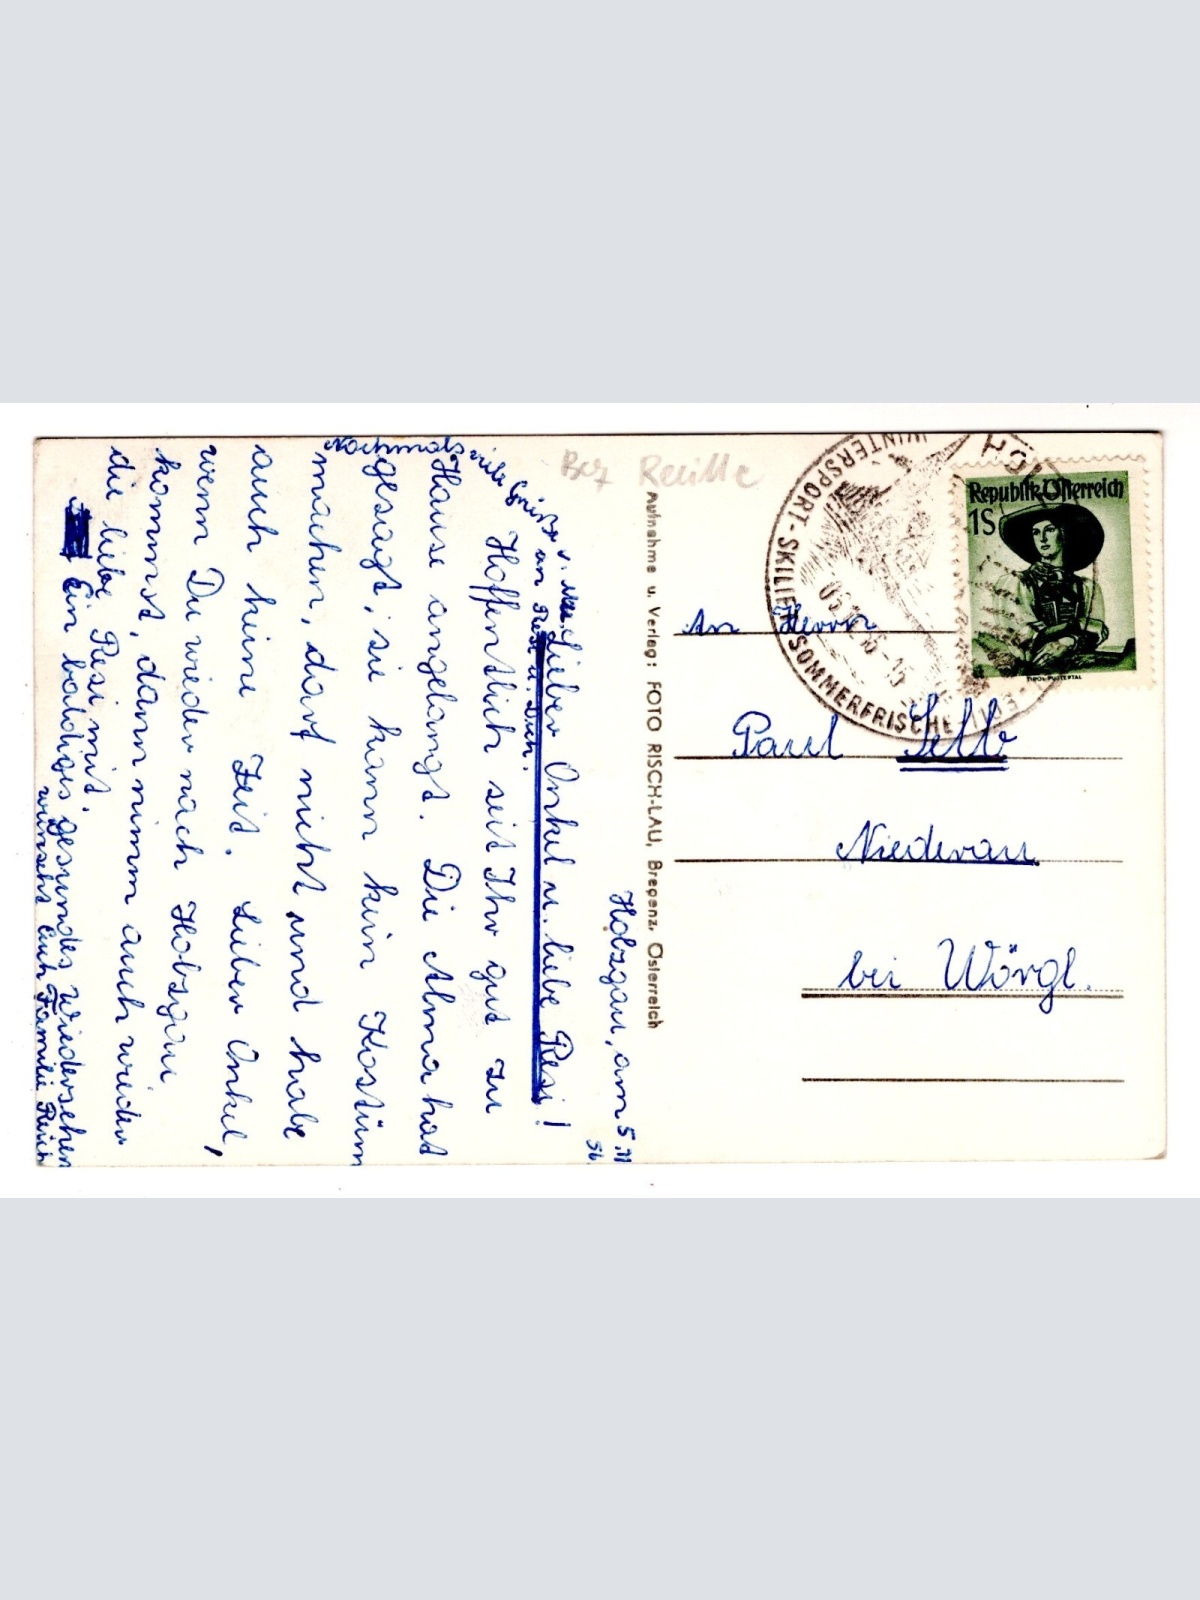 Holzgau, am 5.11
56.
Lieber Onkel u. liebe Resi!
Hoffentlich seit Ihr gut zu
Hause angelangt. Die Alma hat
gesagt, sie kann kein Kostüm
machen, darf nicht und habe
auch keine Zeit. Lieber Onkel,
wenn Du wieder nach Holzgau
kommst, dann nimm auch wieder
die liebe Resi mit.
Ein baldiges gesundes Wiedersehen
wünscht Euch Familie
Nochmals viele Grüße v.
an Resi u. Dich.
Aufnahme u. Verlag: FOTO RISCH-LAU, Bregenz, Österreich
Bez Reutte
WINTERSPORT - SKILIFT SOMMERFRISCHE
Republik Österreich
1S
TIROL PUSTERTAL
An Herrn
Paul Selb
Niederau
bei Wörgl.